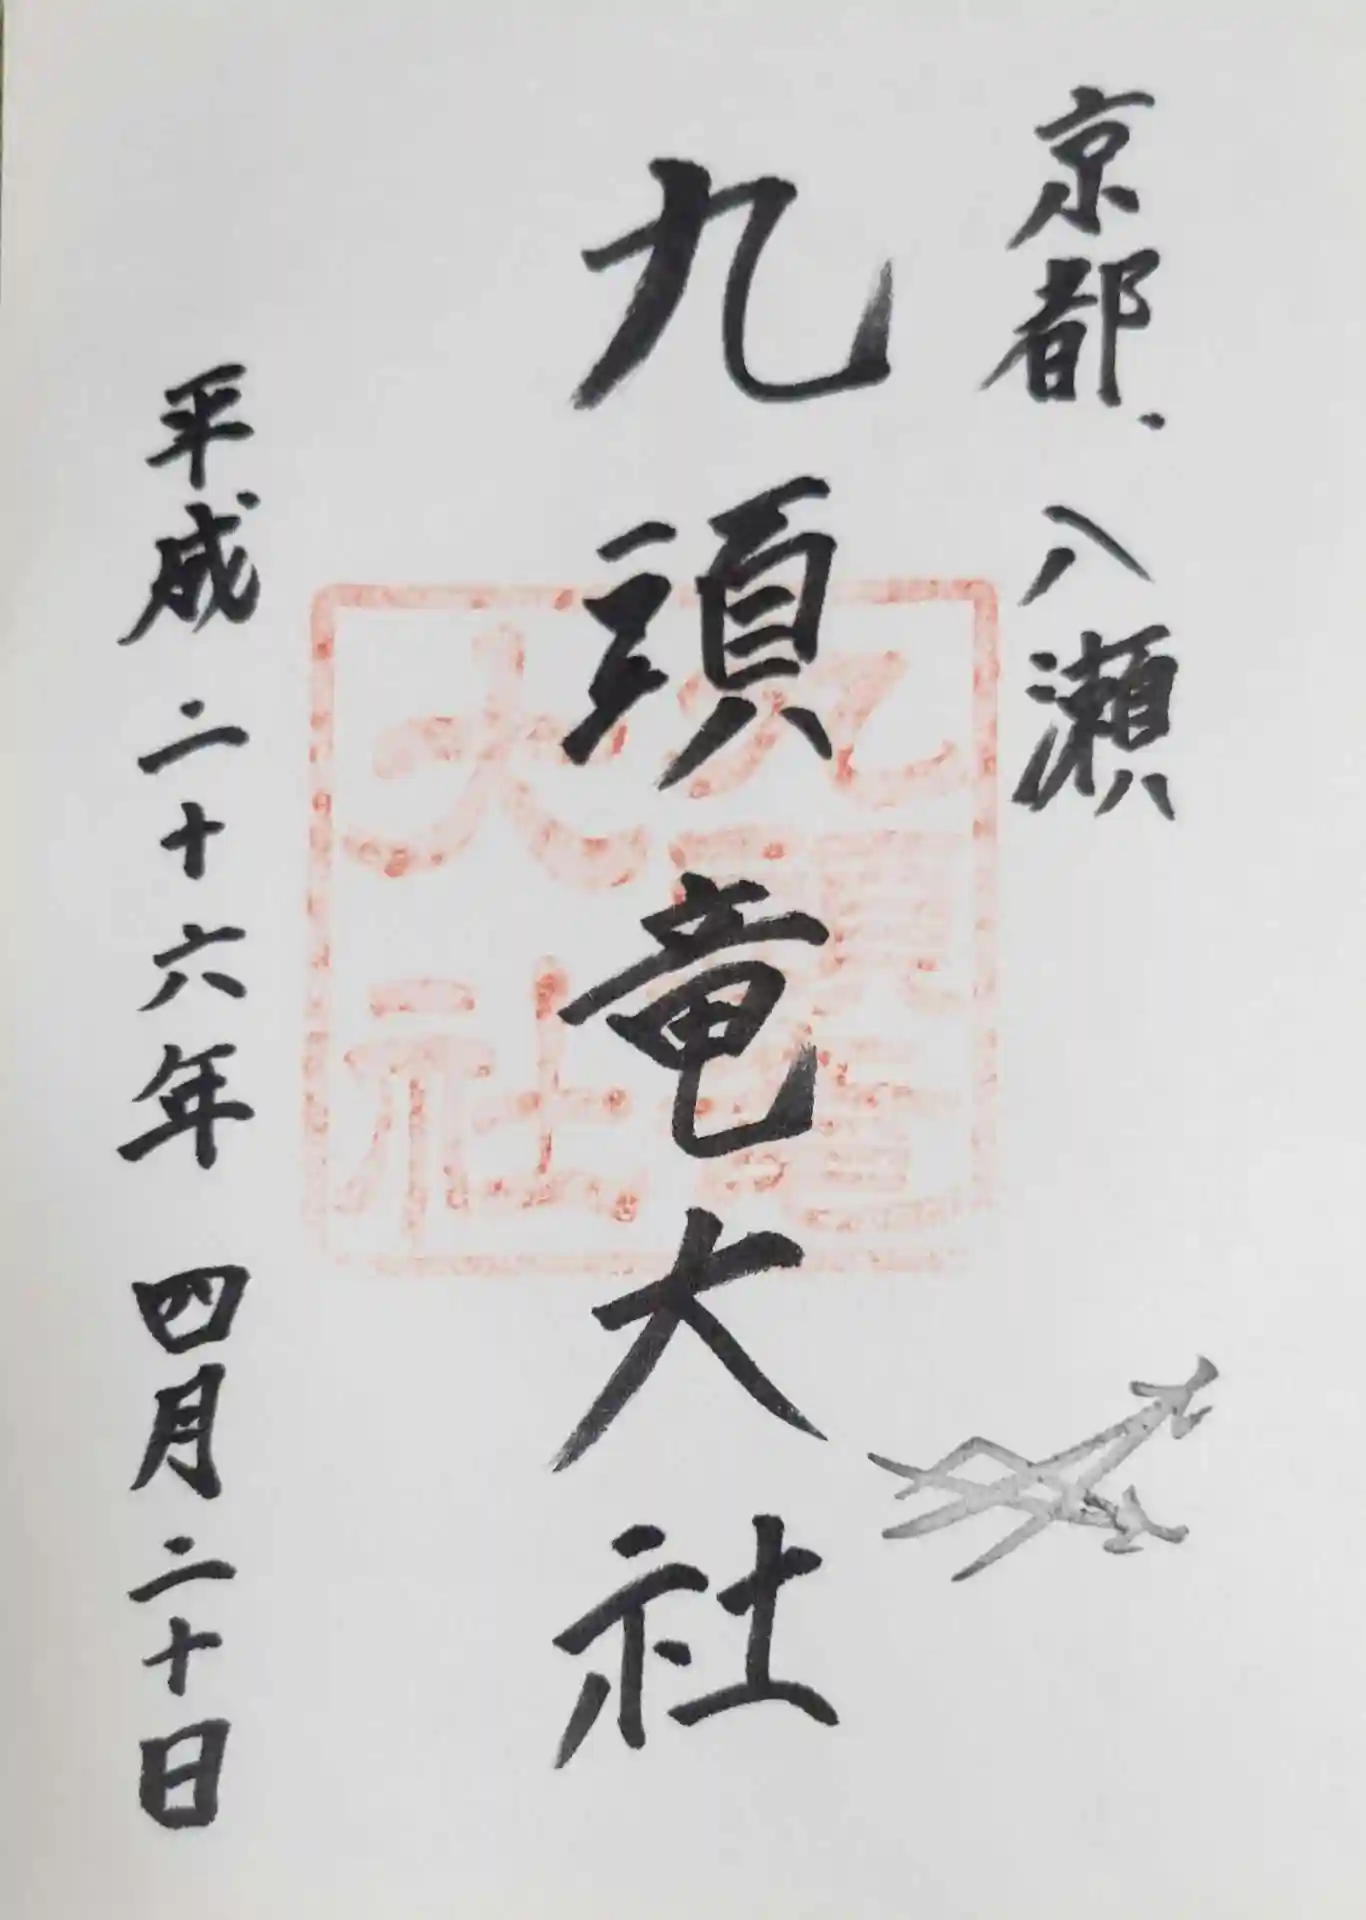 京都．八瀬
九頭竜大社
平成二十六年四月二十日
九頭竜
大社